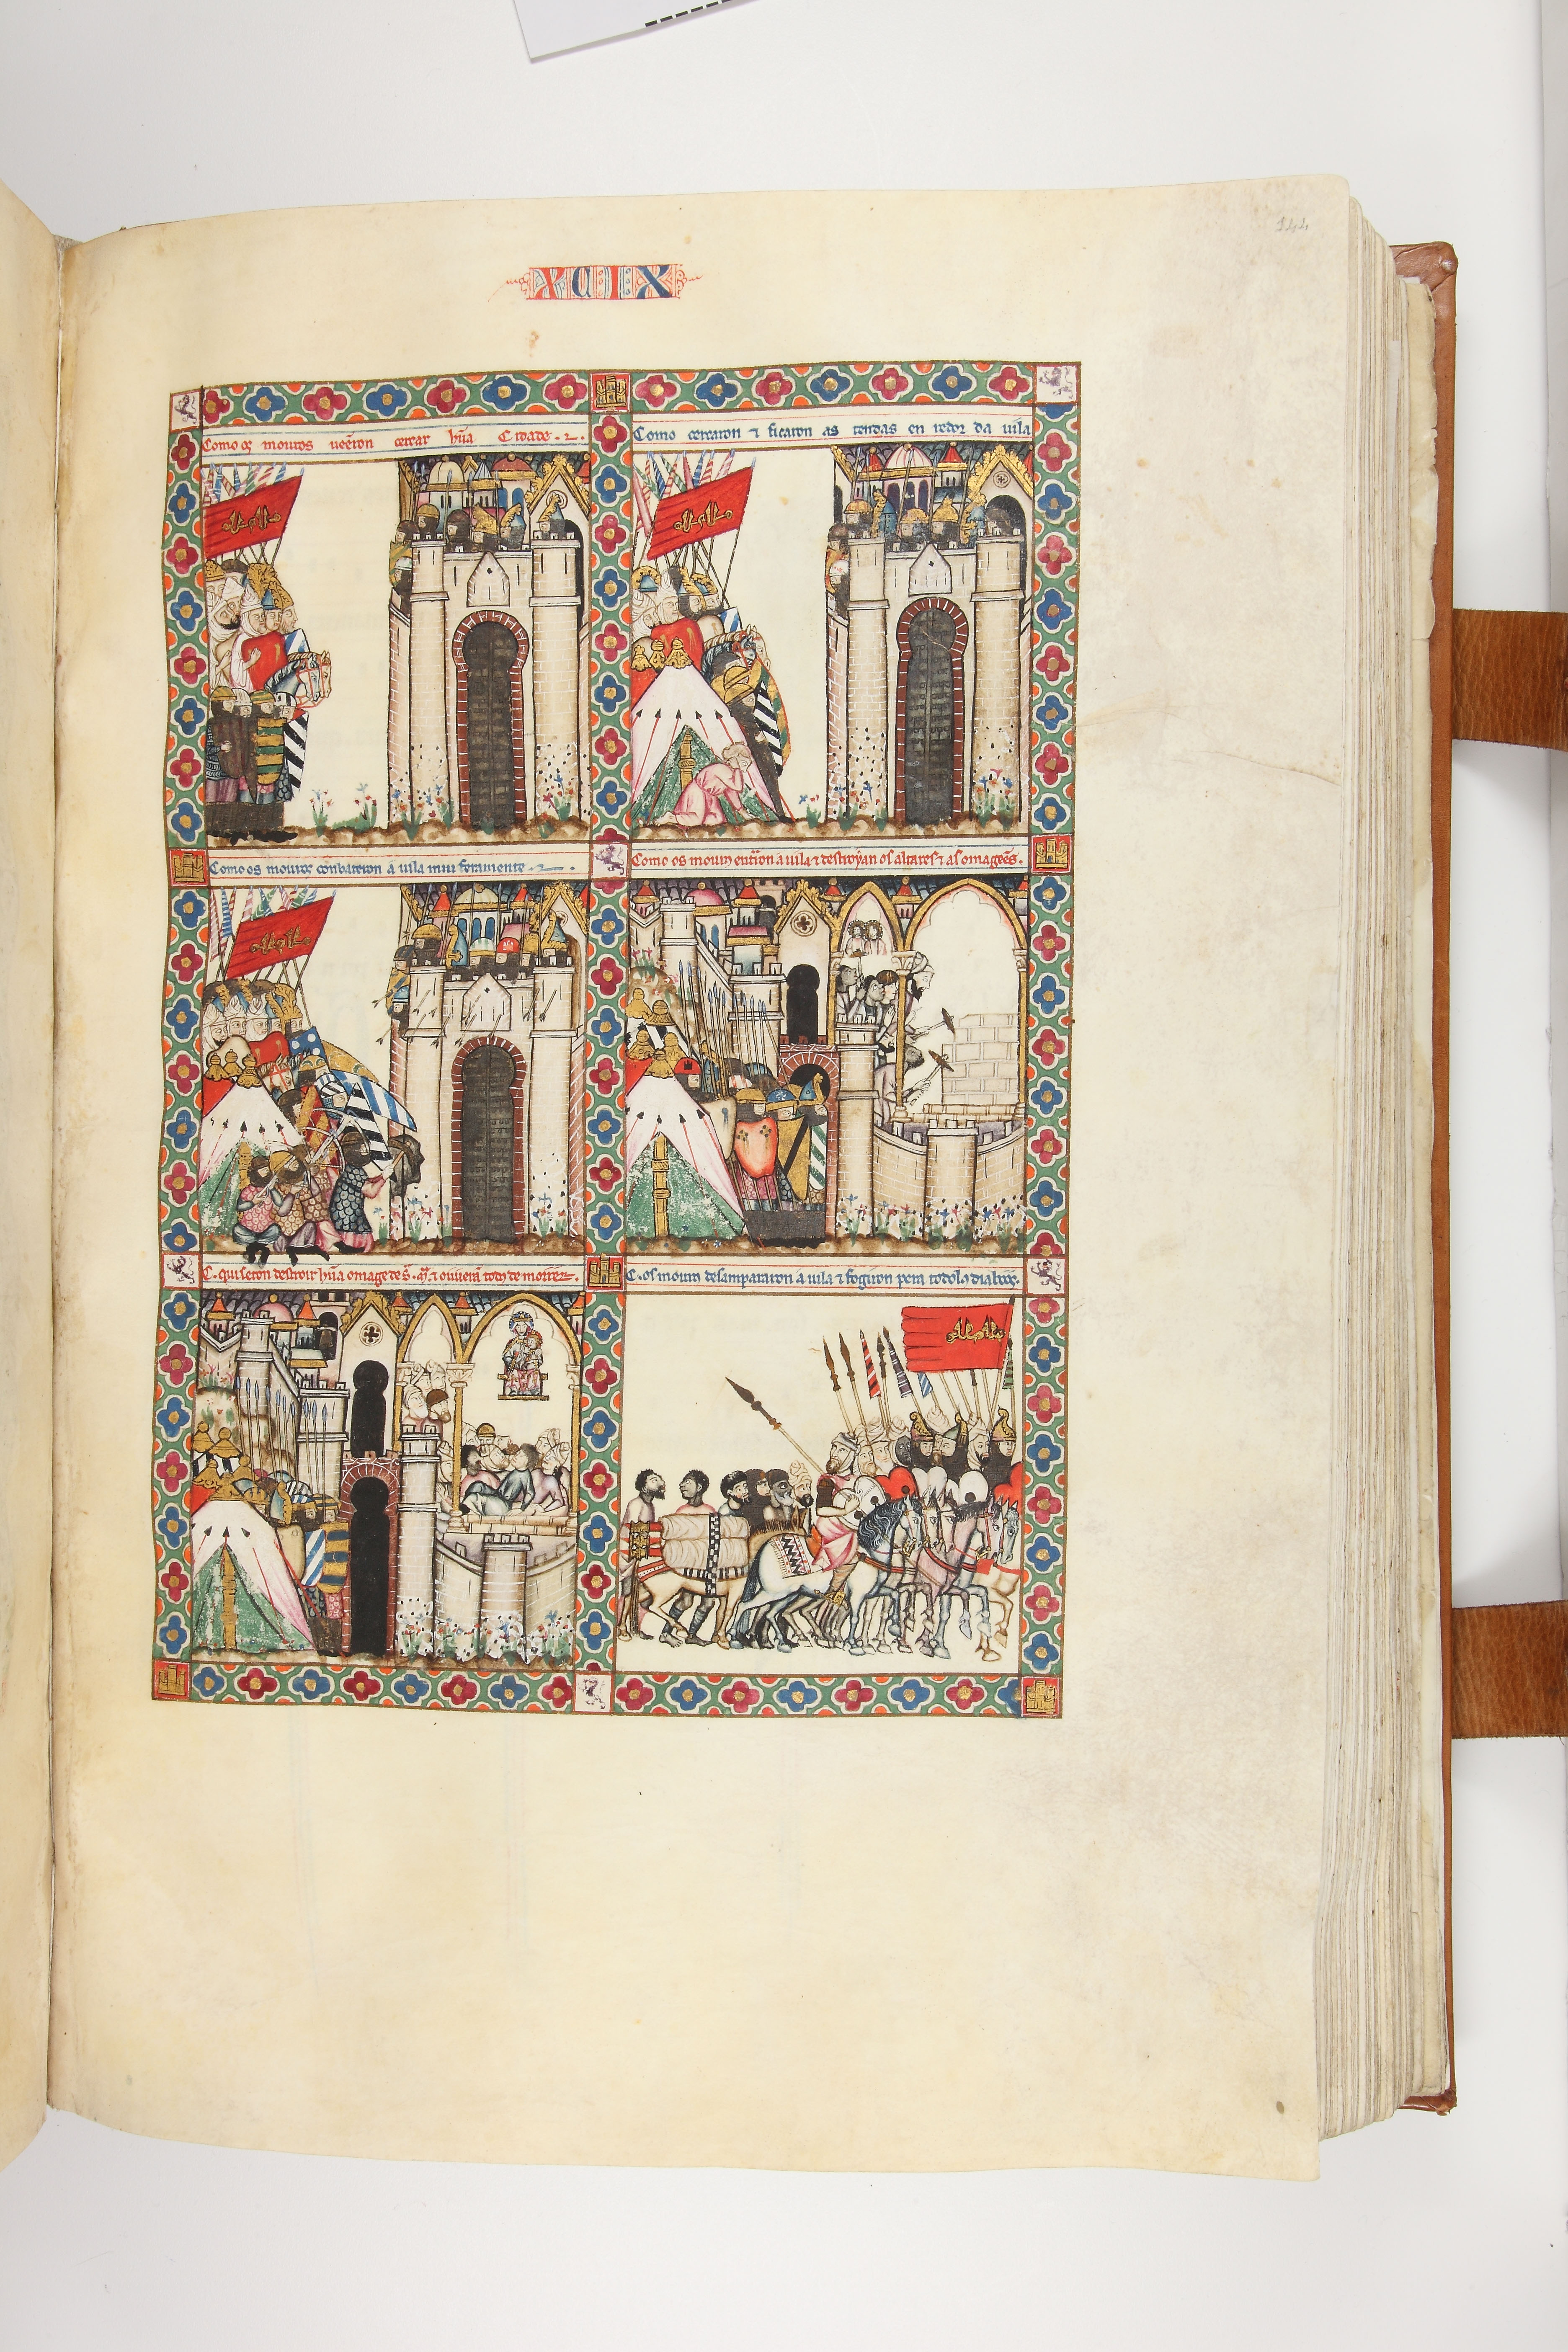 144
XCIX
Como os mouros uẽeron cercar hũa Cidade.
Como cercaron ⁊ ficaron as tendas en redor da uila
Como os mouros conbateron a uila mui fortemente.
Como os mouros entrỹon a uila ⁊ destroyan os altares ⁊ as omagẽes.
C. quiseron destroir hũa omage de s. mª. ⁊ ouuerã todos de morrer.
C. os mouros desampararon a uila ⁊ fogiron pera